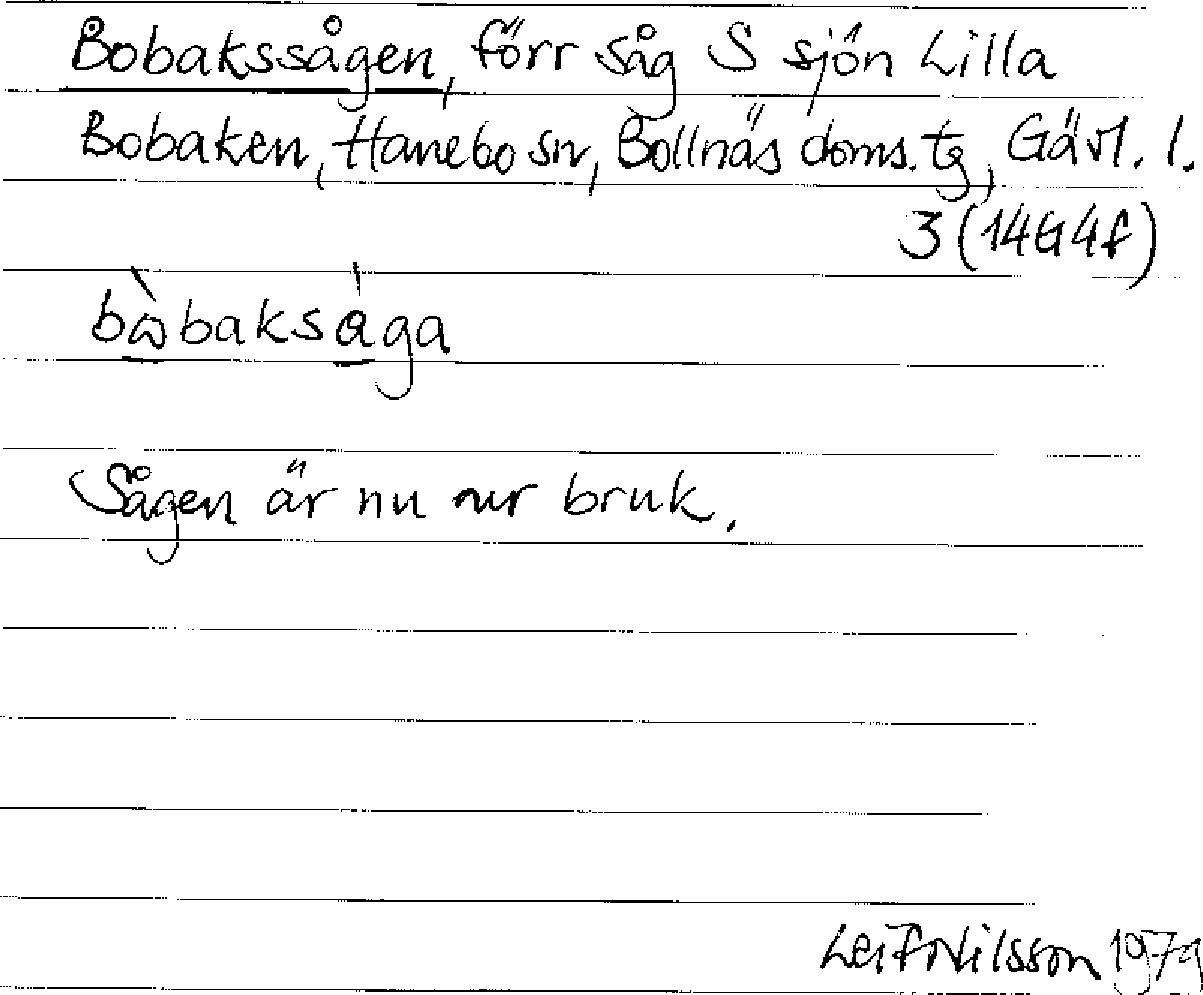 Bobakssågen, förr såg S sjön Lilla
Bobaken, Hanebo sn, Bollnäs doms.tg, Gävl. l.
3 (14G4f)
bὼbaksága
Sågen är nu ur bruk.
Leif Nilsson 1979